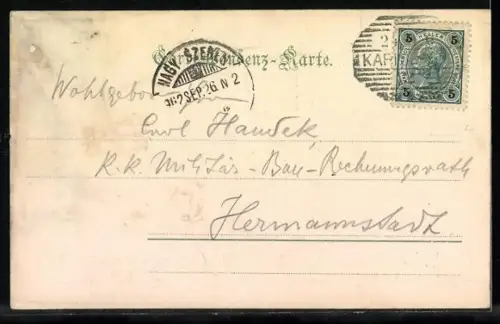 Correspondenz-Karte.
NAGY-SZEBEN
902 SEP. 26. N 2
KAR
5 5
5 5
Wohlgeboren
Carl Handek
k. k. Militär-Bau-Rechnungsrath
Hermannstadt